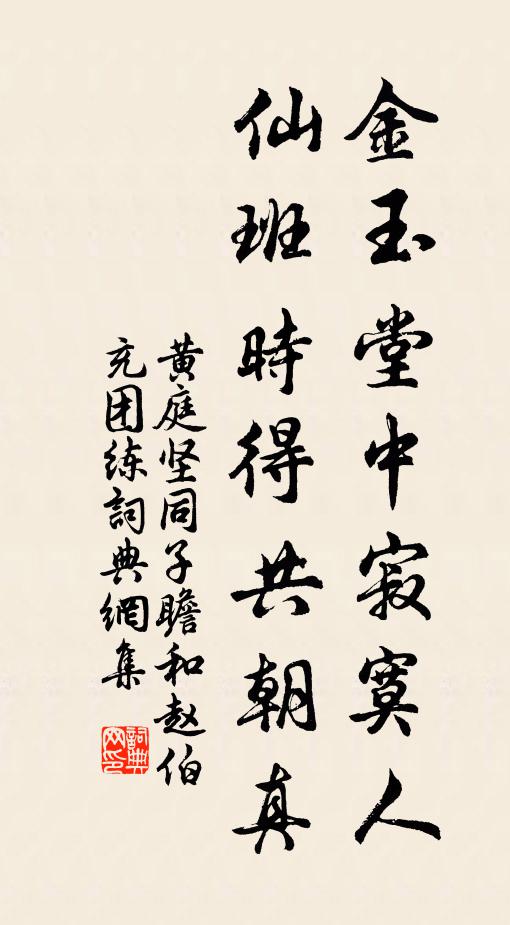 金玉堂中寂寞人
仙班時得共朝真
黄庭坚同子瞻和赵伯
充团练詞典網集
詞典
网印